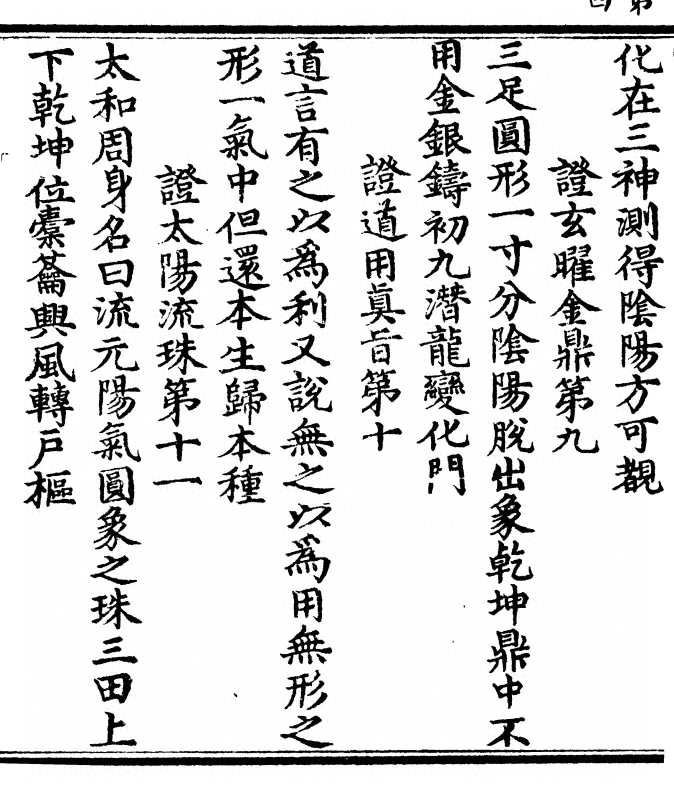 化在三神測得陰陽方可覩
證玄曜金鼎第九
三足圓形一寸分陰陽脫出象乾坤鼎中不
用金銀鑄初九潛龍變化門
證道用真旨第十
道言有之以爲利又說無之以爲用無形之
形一氣中但還本生歸本種
證太陽流珠第十一
太和周身名曰流元陽氣圓象之珠三田上
下乾坤位橐籥興風轉戶樞